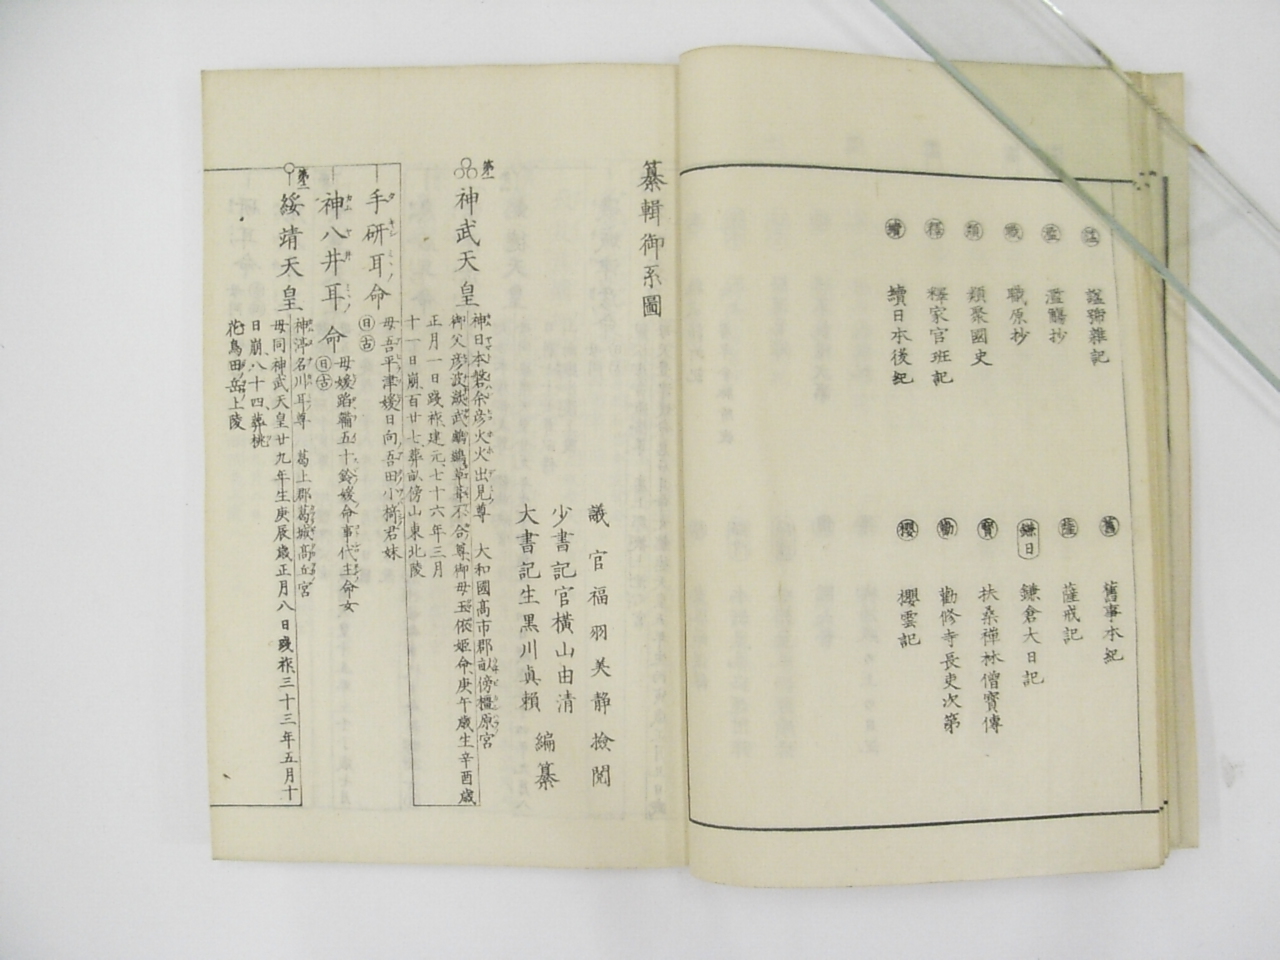 謚 謚號雜記
濫 濫觴抄
職 職原抄
類 類聚國史
釋 釋家官班記
續 續日本後紀
舊 舊事本紀
薩 薩戒記
鎌日 鎌倉大日記
寶 扶桑禅林僧寶傳
勸 勸修寺長吏次第
櫻 櫻雲記
纂輯御系圖
議官福羽美静撿閲
少書記官横山由清
大書記生黒川真頼
編纂
第一
神武天皇
神日本磐余彦火火出見尊 大和國高市郡畝傍橿原宮
御父彦波瀲武鸕鶿草葺不合尊御母玉依姫命、庚午歳生辛酉歳
正月一日踐祚建元、七十六年三月
十一日崩、百廿七、葬畝傍山東北陵
手研耳命 日 古
母吾平津媛日向吾田小椅君妹
神八井耳命 日 古
母媛蹈鞴五十鈴媛命事代主命女
第二
綏靖天皇
神渟名川耳尊 葛上郡葛城高丘宮
母同神武天皇廿九年生庚辰歳正月八日踐祚三十三年五月十
日崩、八十四、葬桃
花鳥田岳上陵